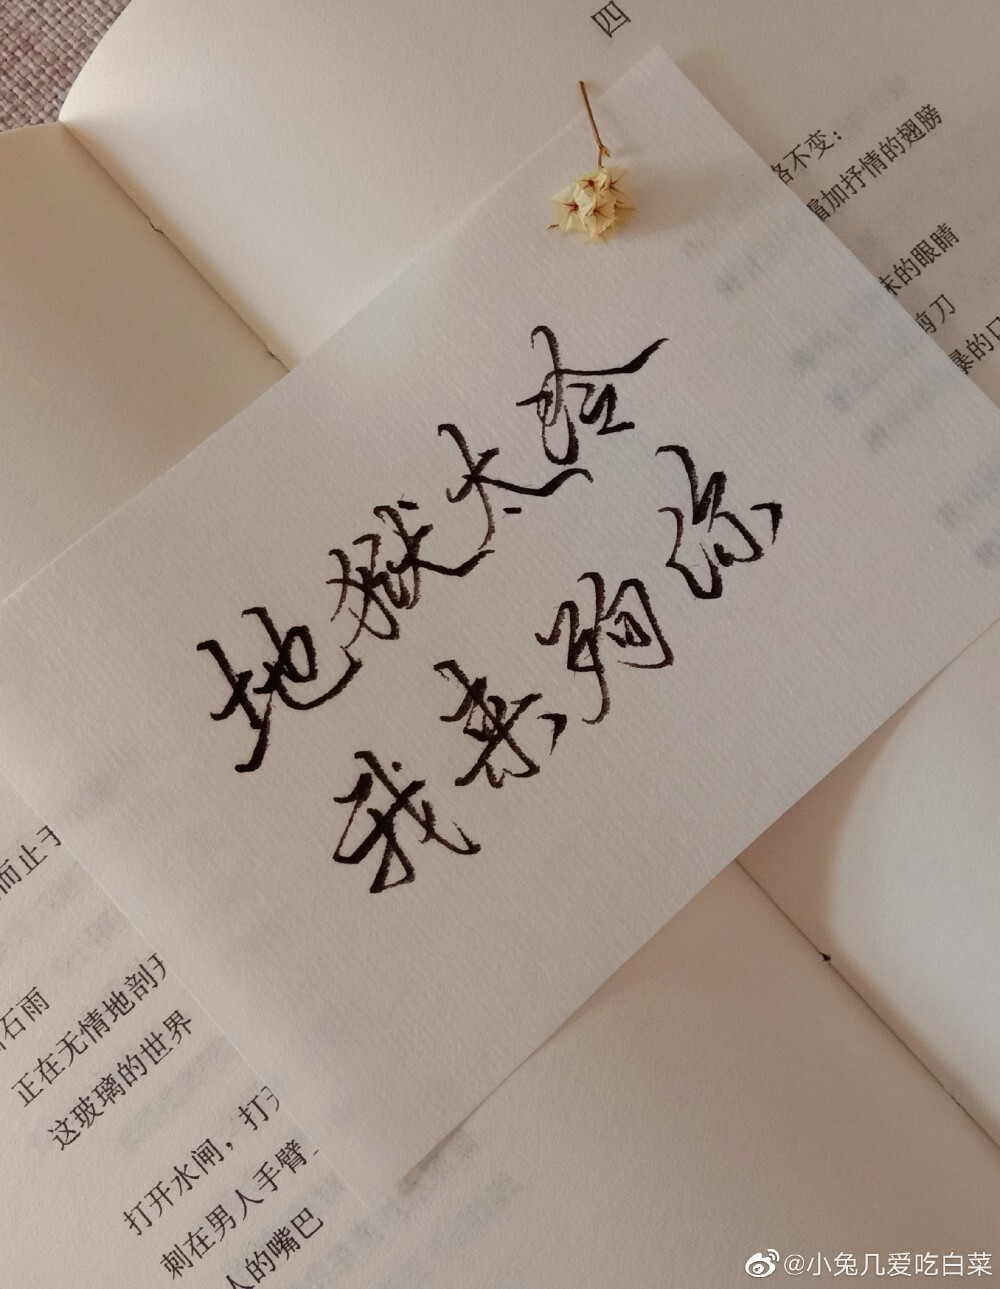 四
不变：
加抒情的翅膀
的眼睛
剪刀
暴的
地狱太冷
我来殉你
而止于
石雨
正在无情地剖开
这玻璃的世界
打开水闸，打开
刺在男人手臂上
人的嘴巴
@小兔几爱吃白菜